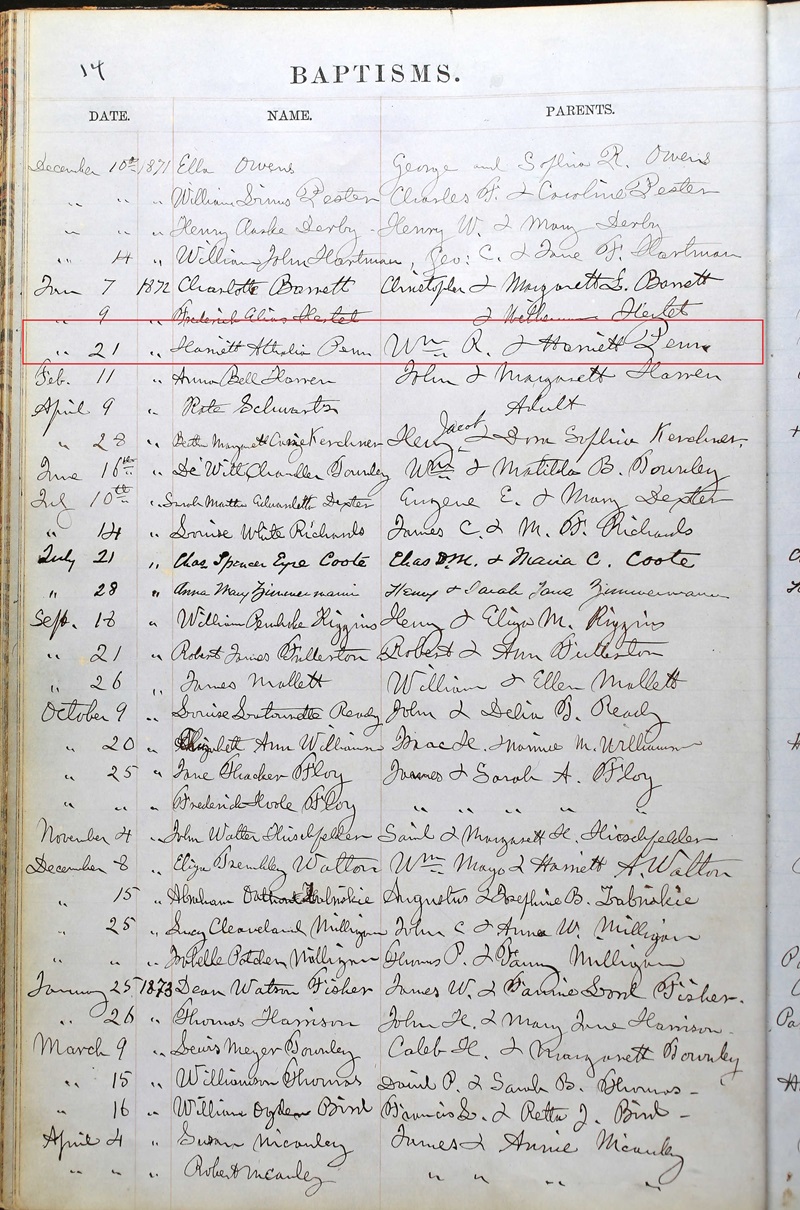 14
BAPTISMS.
DATE. NAME. PARENTS.
December 10th 1871 Ella Owens George and Sophia R. Owens
" " " William Simms Pester Charles F. & Caroline Pester
" " " Henry Derby - Henry W. & Mary Derby
" 14 " William John Hartman, Geo: C. & Jane F. Hartman
Jan 7 1872 Charlotte Barrett Christopher & Margarett S. Barrett
" 9 " Frederick Hertet & Hertet
" 21 " Harriett Athalia Penn Wm R. & Harriett Penn
Feb. 11 " Anna Bell Harren John & Margarett Harren
April 9 " Kate Schwartz Adult
" 28 " Margarett Kerchner Henry Jacob & Dora Sophia Kerchner.
June 16th " De Witt Chandler Townley Wm & Matilda B. Townley
July 10th " Sarah Martha Dexter Eugene E. & Mary Dexter
" 14 " Louise White Richards James C. & M. F. Richards
July 21 " Chas Spencer Eyre Coote Chas D.M. & Maria C. Coote
" 28 " Anna Mary Zimmermann Henry & Sarah Jane Zimmermann
Sept. 18 " William Pembroke Higgins Henry & Eliza M. Higgins
" 21 " Robert James Fullerton Robert & Ann Fullerton
" 26 " James Mallett William & Ellen Mallett
October 9 " Louise Ready John & Delia B. Ready
" 20 " Elizabeth Ann Williams Isaac H. & M. Williams
" 25 " Jane Thacker Floy James & Sarah A. Floy
" " " Frederick Floy " " " "
November 4 " John Walter Hirschfelder Saml & Margarett H. Hirschfelder
December 8 " Eliza Brembley Walton Wm Mayo & Harriett A. Walton
" 15 " Abraham Zabriskie Augustus & Josephine B. Zabriskie
" 25 " Lucy Cleaveland Milligan John C & Anna W. Milligan
" " " Isabelle Milligan Thomas P. & Fanny Milligan
January 25 1873 Dean Watson Fisher James W. & Fannie Lord Fisher.
" 26 " Thomas Harrison John H. & Mary Jane Harrison -
March 9 " Lewis Meyer Townley Caleb H. & Margarett Townley
" 15 " Williamson Thomas David P. & Sarah B. Thomas -
" 16 " William Ogden Bird Francis L. & Retta J. Bird -
April 4 " Susan McCauley James & Annie McCauley
" " " Robert McCauley " " " "